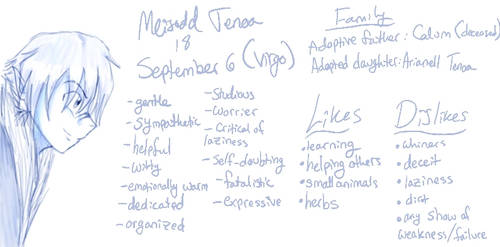 Meisadd Tenoa
18
September 6 (Virgo)
- gentle
- sympathetic
- helpful
- witty
- emotionally warm
- dedicated
- organized
- Studious
- Worrier
- Critical of
laziness
- Self-doubting
- fatalistic
- expressive
Family
Adoptive father: Calum (deceased)
Adopted daughter: Arianell Tenoa
Likes
• learning
• helping others
• small animals
• herbs
Dislikes
• whiners
• deceit
• laziness
• dirt
• any show of
weakness/failure